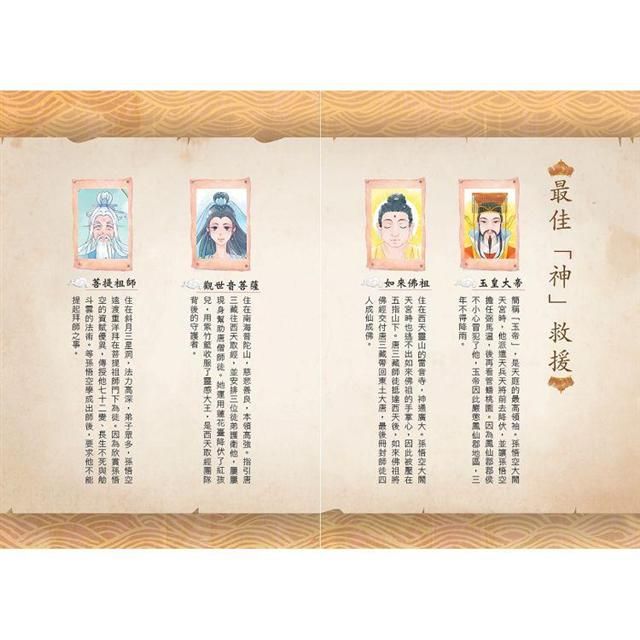 最佳「神」救援
玉皇大帝
簡稱「玉帝」，是天庭的最高領袖。孫悟空大鬧
天宮時，他派遣天兵天將前去降伏，並讓孫悟空
擔任弼馬溫，後再看管蟠桃園。因為鳳仙郡郡侯
不小心冒犯了他，玉帝因此嚴懲鳳仙郡地區，三
年不得降雨。
如來佛祖
住在西天靈山的雷音寺，神通廣大。孫悟空大鬧
天宮時也逃不出如來佛祖的手掌心，因此被壓在
五指山下。唐三藏師徒抵達西天後，如來佛祖將
佛經交付唐三藏帶回東土大唐，最後冊封師徒四
人成仙成佛。
觀世音菩薩
住在南海普陀山，慈悲善良，本領高強。指引唐
三藏往西天取經，並安排三位徒弟護衛他，屢屢
現身幫助唐僧師徒。她運用蓮花臺降伏了紅孩
兒，用紫竹籃收服了靈感大王，是西天取經團隊
背後的守護者。
菩提祖師
住在斜月三星洞，法力高深，弟子眾多，孫悟空
遠渡重洋拜在菩提祖師門下為徒。因為欣賞孫悟
空的資賦優異，傳授他七十二變、長生不死與觔
斗雲的法術。等孫悟空學成出師後，要求他不能
提起拜師之事。